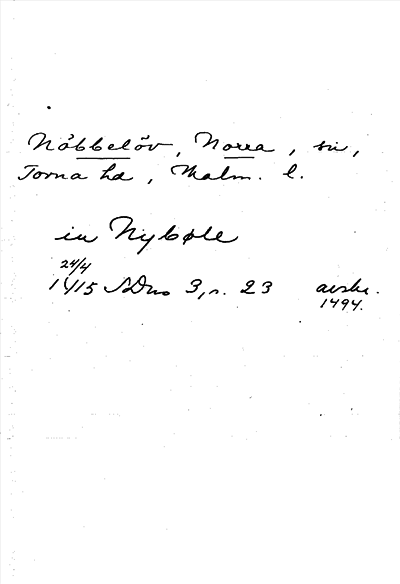 Nöbbelöv, Norra, sn,
Torna hd, Malm. l.
in Nybøle
24/4
1415 SDns 3, s. 23 avskr.
1494.